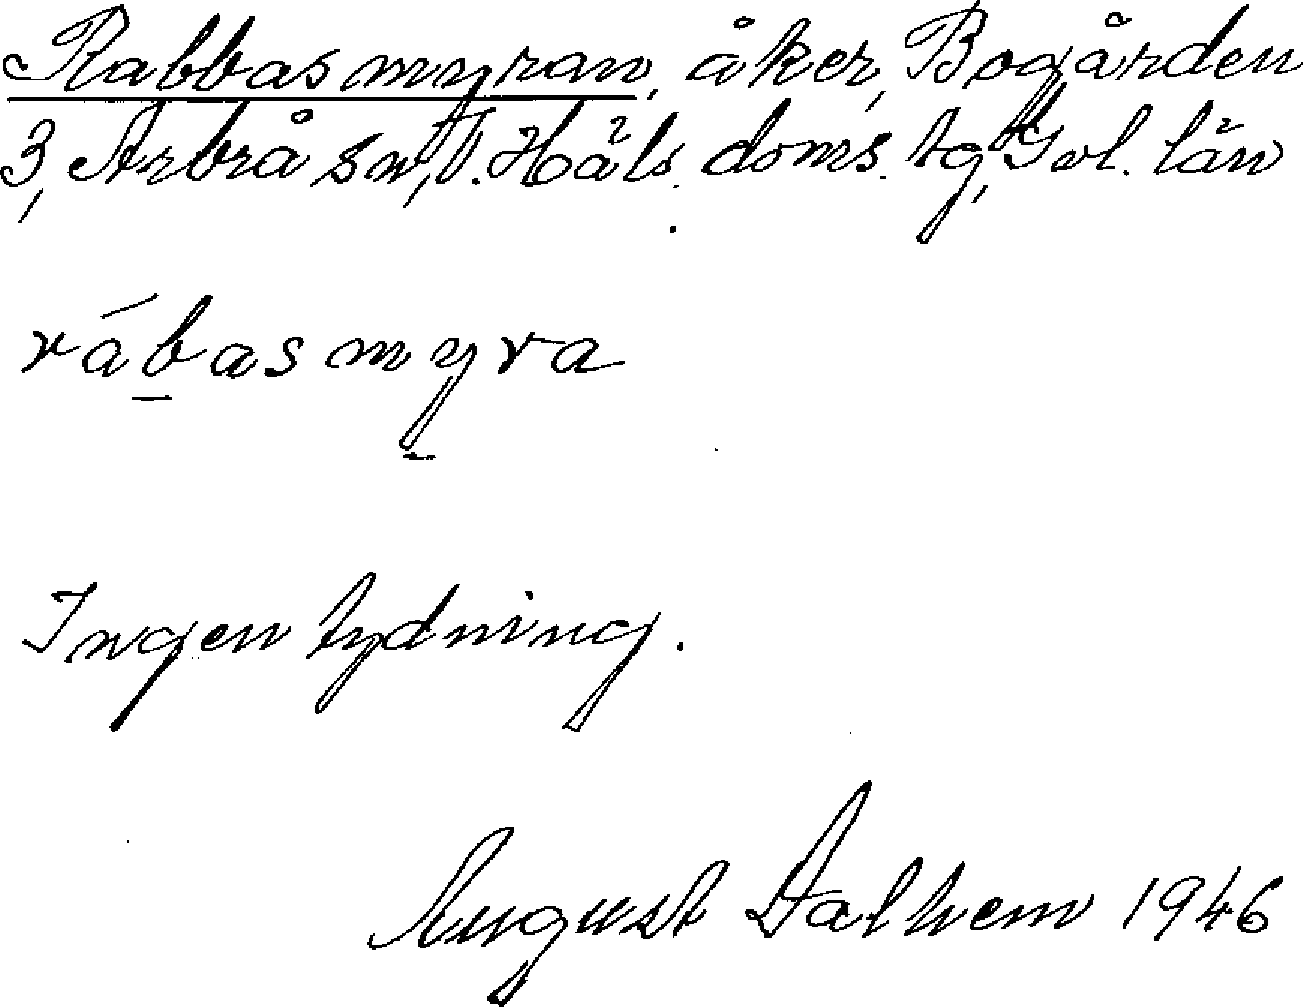 Rabbasmyran, åker, Bogården
3, Arbrå sn, V. Häls. doms. tg, Gvl. län
rábasmyra
Ingen tydning.
August Dalhem 1946